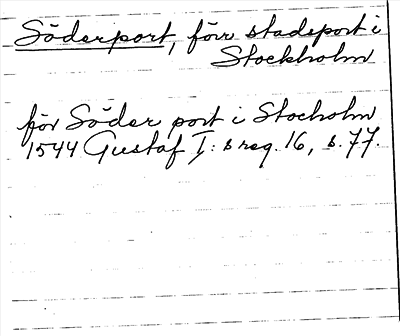 Söderport, förr stadsport i
Stockholm
för Söder port i Stocholm
1544 Gustaf I: s reg. 16, s. 77.